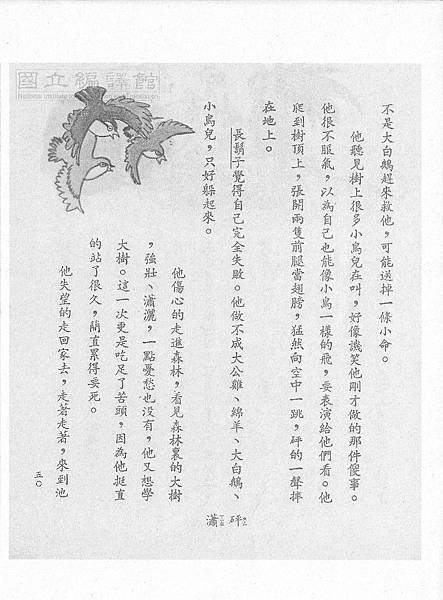 國立編譯館
不是大白鵝趕來救他，可能送掉一條小命。
他聽見樹上很多小鳥兒在叫，好像譏笑他剛才做的那件傻事。
他很不服氣，以為自己也能像小鳥一樣的飛，要表演給他們看。他
爬到樹頂上，張開兩隻前腿當翅膀，猛然向空中一跳，砰的一聲摔
在地上。
長鬍子覺得自己完全失敗。他做不成大公雞、綿羊、大白鵝、
小鳥兒，只好躲起來。
他傷心的走進森林，看見森林裏的大樹
，強壯、瀟灑，一點憂愁也沒有，他又想學
大樹。這一次更是吃足了苦頭，因為他挺直
的站了很久，簡直累得要死。
他失望的走回家去，走著走著，來到池
砰ㄆㄥ
瀟ㄒㄧㄠ
五〇